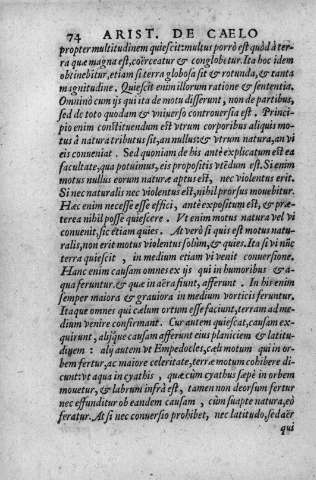 74 ARIST. DE CAELO
propter multitudinem quiescit: multus porrò est quòd à ter-
ra quæ magna est, coërceatur & conglobetur. Ita hoc idem
obtinebitur, etiam si terra globosa sit & rotunda, & tanta
magnitudine. Quiescit enim illorum ratione & sententia.
Omninò cum ijs qui ita de motu disserunt, non de partibus,
sed de toto quodam & vniuerso controuersia est. Princi-
pio enim constituendum est vtrum corporibus aliquis mo-
tus à natura tributus sit, an nullus: & vtrum natura, an vi
eis conueniat. Sed quoniam de his antè explicatum est ea
facultate, qua potuimus, eis propositis vtẽdum est. Si enim
motus nullus eorum naturæ aptus est, nec violentus erit.
Si nec naturalis nec violentus est, nihil prorsus mouebitur.
Hæc enim necesse esse effici, antè expositum est, & præ-
terea nihil posse quiescere. Vt enim motus natura vel vi
conuenit, sic etiam quies. At verò si quis est motus natu-
ralis, non erit motus violentus solùm, & quies. Ita si vi nũc
terra quiescit, in medium etiam vi venit conuersione.
Hanc enim causam omnes ex ijs qui in humoribus & a-
qua feruntur. & quæ in aëra fiunt, afferunt. In his enim
semper maiora & grauiora in medium vorticis feruntur.
Itaque omnes qui cælum ortum esse faciunt, terram ad me-
dium venire confirmant. Cur autem quiescat, causam ex-
quirunt, alijsque causam afferunt eius planiciem & latitu-
dinem: alij autem vt Empedocles, cæli motum qui in or-
bem fertur, ac maiore celeritate, terræ motum cohibere di-
cunt: vt aqua in cyathis, quæ cùm cyathus sæpè in orbem
mouetur, & labrum infrà est, tamen non deorsum fertur
nec effunditur ob eandem causam, cùm suapte natura, eò
feratur. At si nec conuersio prohibet, nec latitudo, sed aër
qui